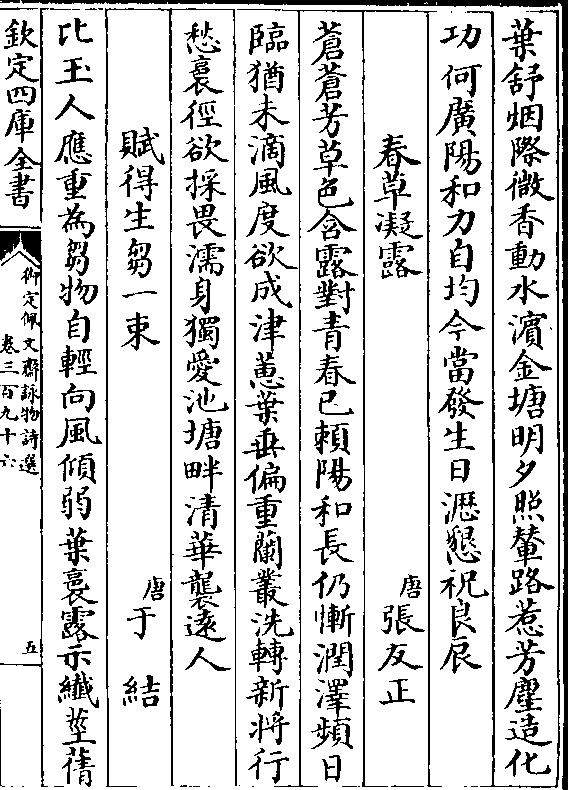 葉舒烟際微香動水濵金塘明夕照輦路惹芳塵造化
功何廣陽和力自均今當發生日瀝懇祝良辰
春草凝露 唐張友正
蒼蒼芳草色含露對青春已賴陽和長仍慚潤澤頻日
臨猶未滴風度欲成津蕙葉垂偏重蘭叢洗轉新將行
愁裛徑欲採畏濡身獨愛池塘畔清華襲逺人
賦得生芻一束 唐于結
比玉人應重為芻物自輕向風傾弱葉裛露示纎莖蒨
欽定四庫全書
御定佩文齋詠物詩選
卷三百九十六
五